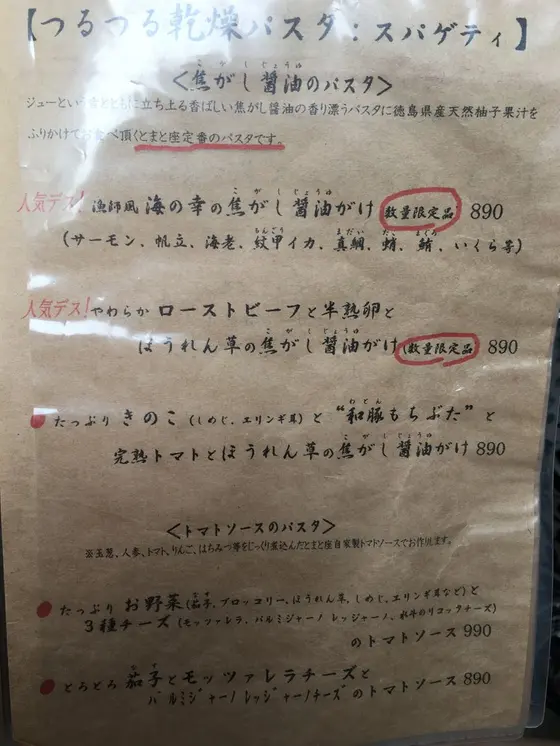 【つるつる乾燥パスタ：スパゲティ】
＜焦がし醤油のパスタ＞
ジューという音とともに立ち上る香ばしい焦がし醤油の香り漂うパスタに徳島県産天然柚子果汁を
ふりかけてお食べ頂くとまと座定番のパスタです。
人気デス! 漁師風 海の幸の焦がし醤油がけ 数量限定品 890
(サーモン、帆立、海老、紋甲イカ、真鯛、蛸、鮪、いくら等)
人気デス! やわらか ローストビーフと半熟卵と
ほうれん草の焦がし醤油がけ (数量限定品 890
たっぷり きのこ (しめじ、エリンギ茸) と “和豚もちぶた” と
完熟トマトとほうれん草の焦がし醤油がけ 890
＜トマトソースのパスタ＞
※玉葱、人参、トマト、りんご、はちみつ等をじっくり煮込んだとまと座自家製トマトソースでお作りします。
たっぷり お野菜 (茄子、ブロッコリー、ほうれん草、しめじ、エリンギ茸など) と
3種チーズ (モッツァレラ、パルミジャーノ レッジャーノ、水牛のリコッタチーズ)
のトマトソース 990
とろとろ 茄子とモッツァレラチーズと
パルミジャーノ レッジャーノチーズのトマトソース 890